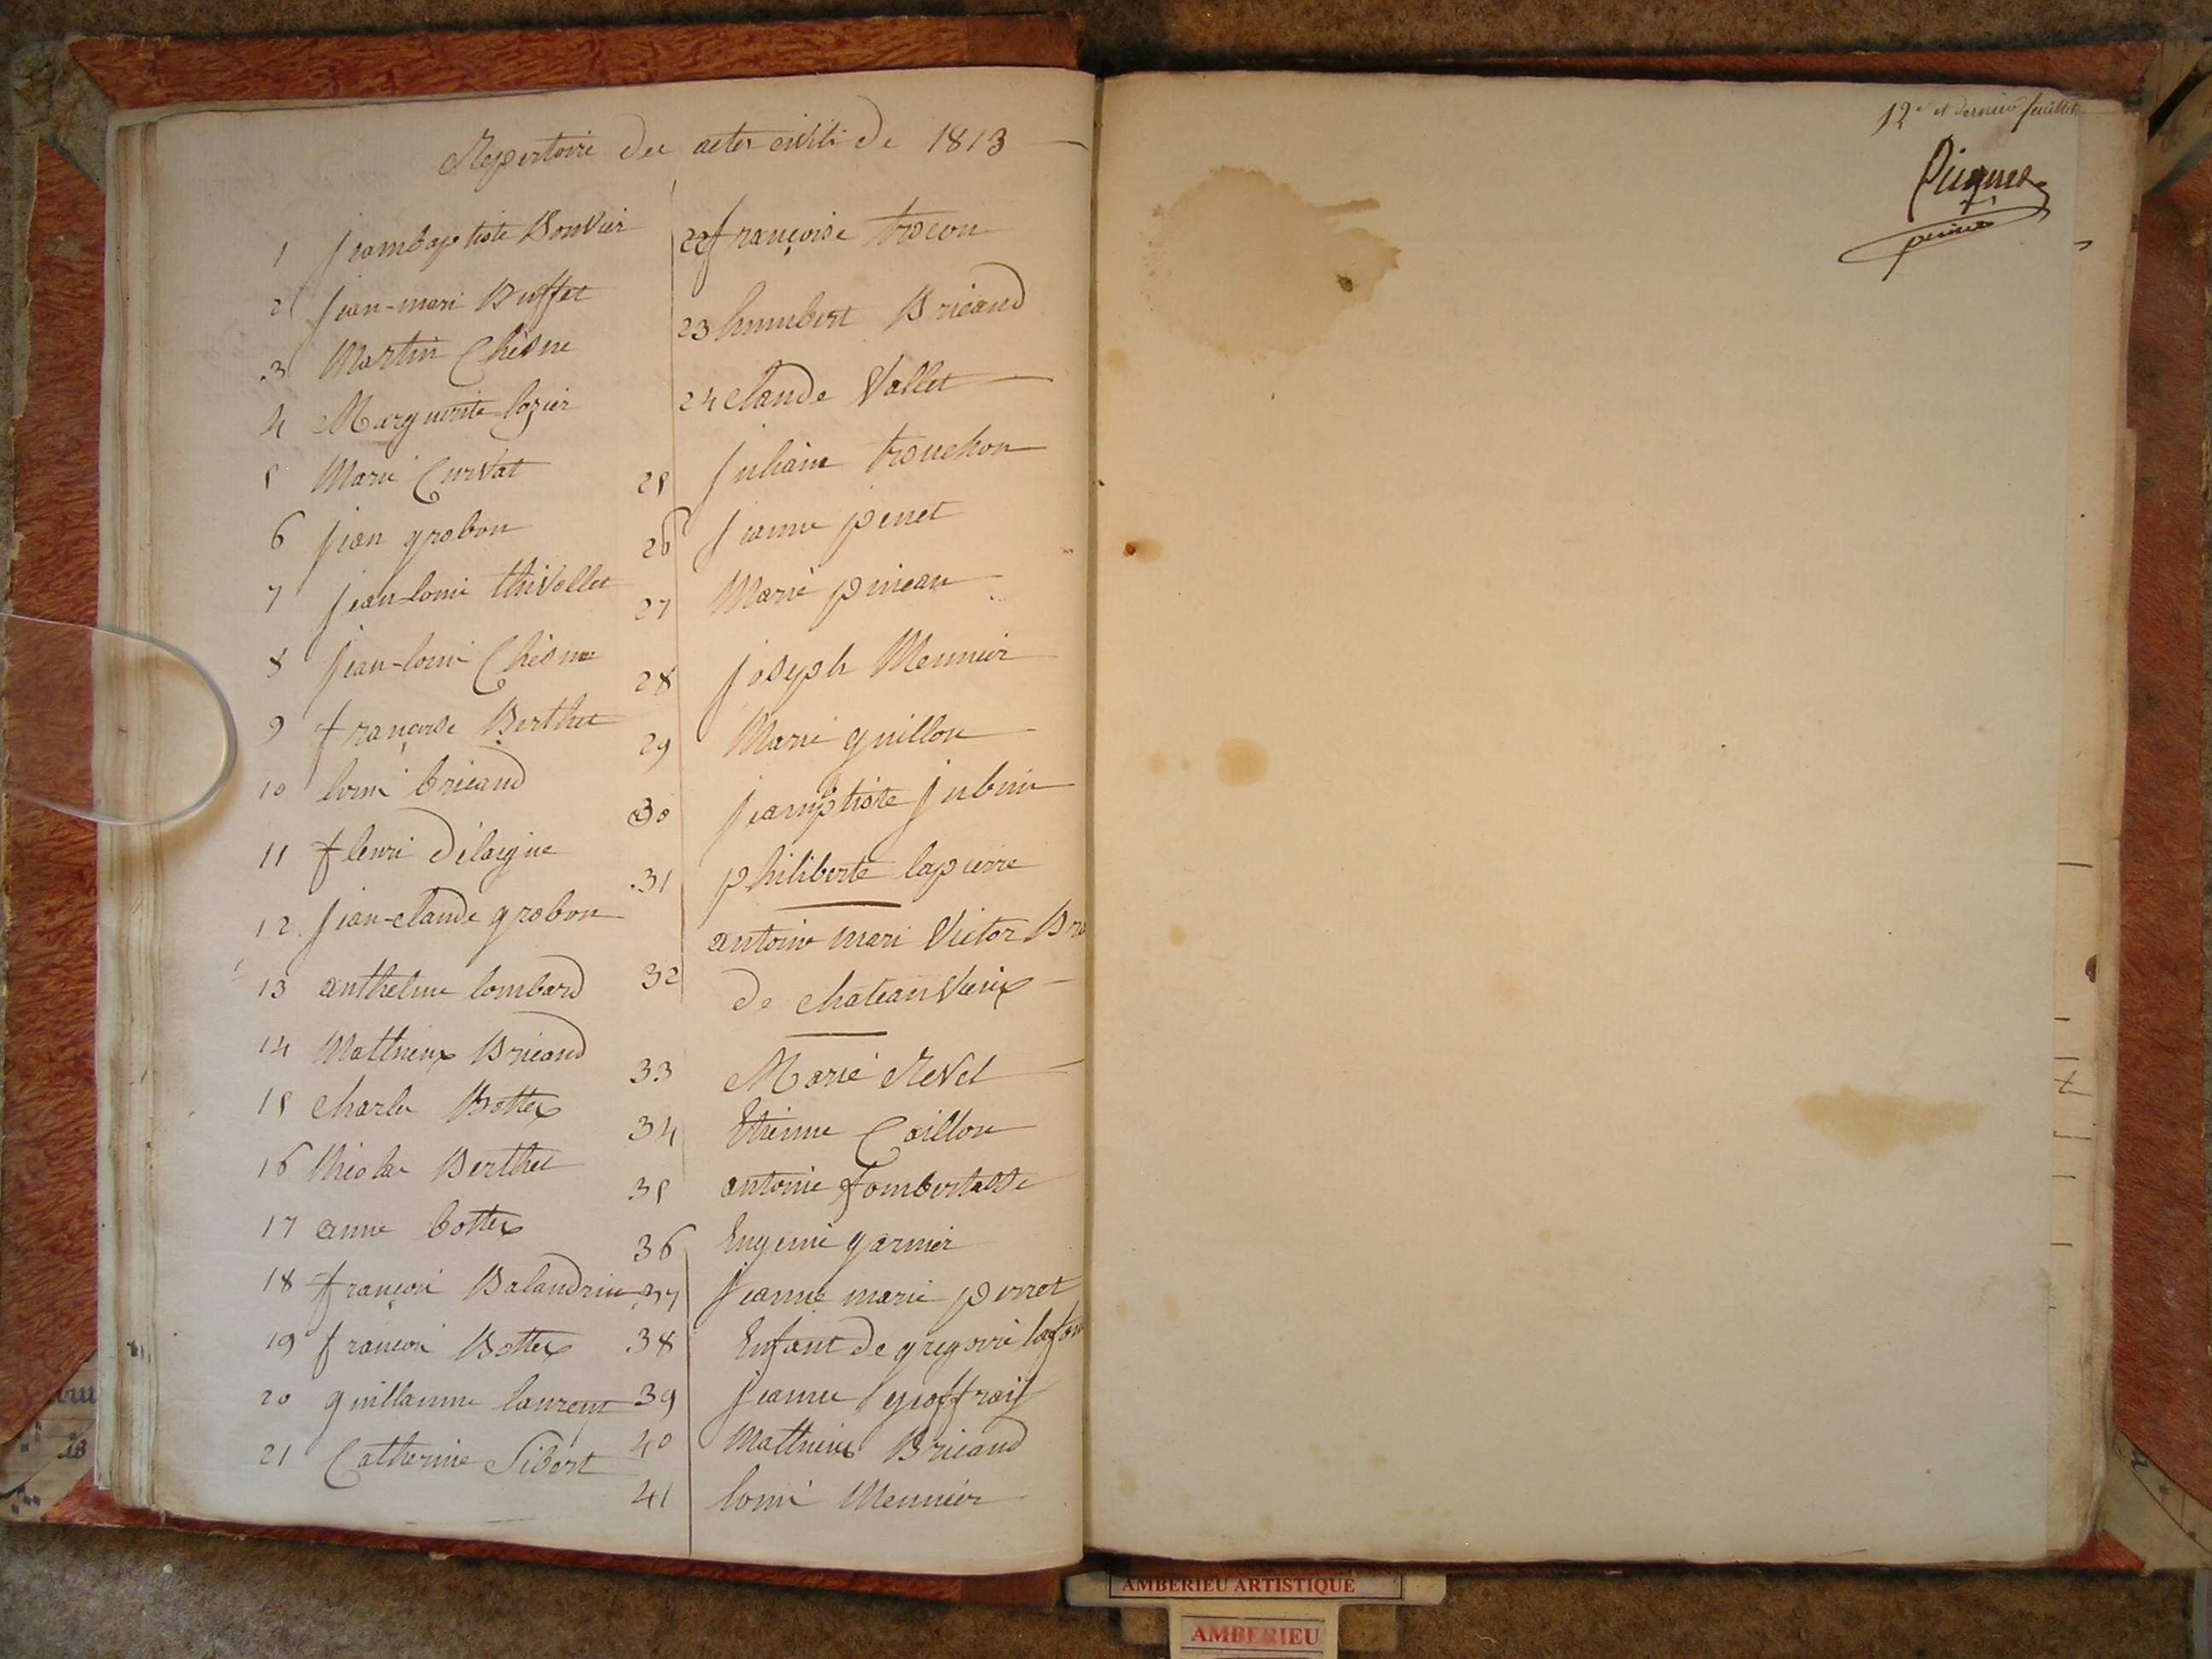 Repertoire des actes civils de 1813
1 jeambaptiste Bouvier
2 jean-mari Buffet
3 Martin Chesne
4 Marguerite lozier
5 Marie Curvat
6 jean grobon
7 jean-louis thivollet
8 jean-louis Chesne
9 françoise Berthet
10 louis bricand
11 fleuri delaigue
12 jean-claude grobon
13 anthelme lombard
14 Matthieux Bricand
15 charles Bottex
16 Nicolas Berthet
17 anne bottex
18 françois Balandrin
19 françois Bottex
20 guillaume laurent
21 Catherine Sibert
22 françoise trocon
23 humbert Bricand
24 claude Vallet
25 juliaine trouchon
26 jeanne penet
27 Marie pineau
28 joseph Meunier
29 Marie guillon
30 jeamptiste jubin
31 philiberte lapierre
32 antoine mari Victor
de chateauvieux
33 Marie Revel
34 Etienne Caillon
35 antoine fombertasse
36 Eugenie garnier
37 jeanne marie perret
38 Enfant de gregoire
39 jeanne geoffray
40 Matthieux Bricand
41 louis Meunier
12e et dernier feuillet
AMBERIEU ARTISTIQUE
AMBERIEU